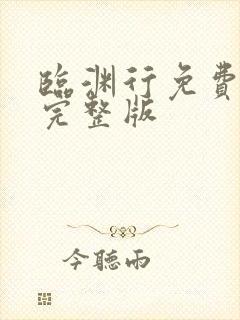 臨渊行免費
完整版
今聽雨